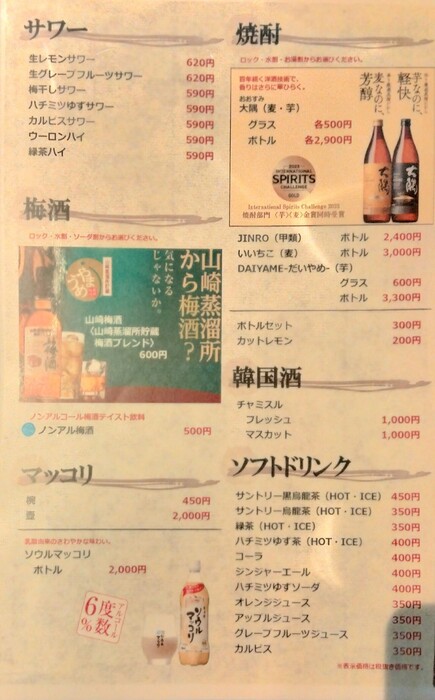 サワー
生レモンサワー 620円
生グレープフルーツサワー 620円
梅干しサワー 590円
ハチミツゆずサワー 590円
カルピスサワー 590円
ウーロンハイ 590円
緑茶ハイ 590円
梅酒
ロック・水割・ソーダ割からお選びください。
山崎蒸溜所
から梅酒?
気になる
じゃないか。
山崎梅酒
〈山崎蒸溜所貯蔵
梅酒ブレンド〉
600円
ノンアルコール梅酒テイスト飲料
ノンアル梅酒 500円
マッコリ
椀 450円
壺 2,000円
乳酸由来のさわやかな味わい。
ソウルマッコリ
ボトル 2,000円
アルコール
度数
6%
ソウル
マッコリ
焼酎
ロック・水割・お湯割からお選びください。
百年続く洋酒技術で、
香りはさらに華ひらく。
おおすみ
大隅(麦・芋)
グラス 各500円
ボトル 各2,900円
芋なのに、
軽快
麦なのに、
芳醇
大隅
大隅
2023
INTERNATIONAL
SPIRITS
CHALLENGE
GOLD
International Spirits Challenge 2023
焼酎部門 〈芋〉〈麦〉金賞同時受賞
JINRO(甲類) ボトル 2,400円
いいちこ(麦) ボトル 3,000円
DAIYAME-だいやめ-(芋)
グラス 600円
ボトル 3,300円
ボトルセット 300円
カットレモン 200円
韓国酒
チャミスル
フレッシュ 1,000円
マスカット 1,000円
ソフトドリンク
サントリー黒烏龍茶(HOT・ICE) 450円
サントリー烏龍茶(HOT・ICE) 350円
緑茶(HOT・ICE) 350円
ハチミツゆず茶(HOT・ICE) 400円
コーラ 400円
ジンジャーエール 400円
ハチミツゆずソーダ 400円
オレンジジュース 350円
アップルジュース 350円
グレープフルーツジュース 350円
カルピス 350円
※表示価格は税抜き価格です。